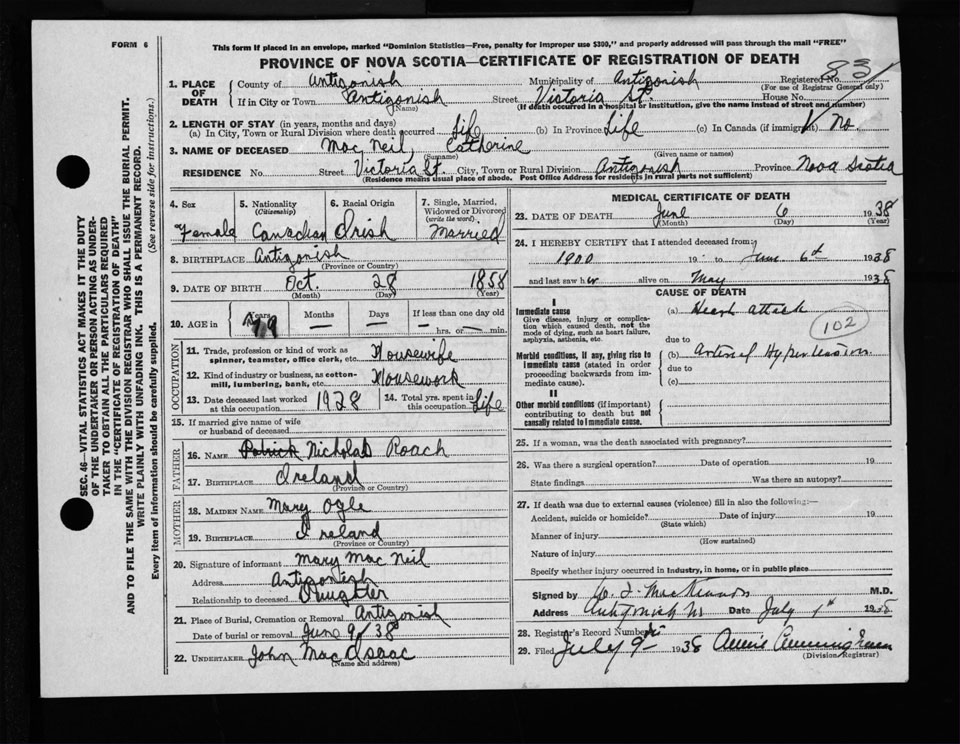 FORM 6
This form if placed in an envelope, marked "Dominion Statistics—Free, penalty for improper use $300," and properly addressed will pass through the mail "FREE"
PROVINCE OF NOVA SCOTIA—CERTIFICATE OF REGISTRATION OF DEATH
1. PLACE OF DEATH { County of Antigonish Municipality of Antigonish Registered No. 83
(For use of Registrar General only)
If in City or Town Antigonish Street Victoria St. House No.
(Name) (If death occurred in a hospital or institution, give the name instead of street and number)
2. LENGTH OF STAY (in years, months and days)
(a) In City, Town or Rural Division where death occurred Life (b) In Province Life (c) In Canada (if immigrant) No.
3. NAME OF DECEASED Mac Neil, Catherine
(Surname) (Given name or names)
RESIDENCE No. Street Victoria St. City, Town or Rural Division Antigonish Province Nova Scotia
(Residence means usual place of abode. Post Office Address for residents in rural parts not sufficient)
4. Sex 5. Nationality (Citizenship) 6. Racial Origin 7. Single, Married, Widowed or Divorced (write the word)
Female Canadian Irish Married
8. BIRTHPLACE Antigonish
(Province or Country)
9. DATE OF BIRTH Oct. 28 1858
(Month) (Day) (Year)
10. AGE in { Years Months Days If less than one day old
79 — — — hrs. or — min.
OCCUPATION
11. Trade, profession or kind of work as spinner, teamster, office clerk, etc. Housewife
12. Kind of industry or business, as cotton-mill, lumbering, bank, etc. Housework
13. Date deceased last worked at this occupation 1928 14. Total yrs. spent in this occupation Life
15. If married give name of wife or husband of deceased
FATHER
16. NAME Patrick Nicholas Roach
17. BIRTHPLACE Ireland
(Province or Country)
MOTHER
18. MAIDEN NAME Mary Ogle
19. BIRTHPLACE Ireland
(Province or Country)
20. Signature of informant Mary Mac Neil
Address Antigonish
Relationship to deceased Daughter
21. Place of Burial, Cremation or Removal Antigonish
Date of burial or removal June 9/38
22. UNDERTAKER John Mac Isaac
(Name and address)
MEDICAL CERTIFICATE OF DEATH
23. DATE OF DEATH June 6 1938
(Month) (Day) (Year)
24. I HEREBY CERTIFY that I attended deceased from:
1900 19 to June 6th 1938
and last saw her alive on May 1938
CAUSE OF DEATH
I
Immediate cause
Give disease, injury or complication which caused death, not the mode of dying, such as heart failure, asphyxia, asthenia, etc.
(a) Heart attack
102
due to
Morbid conditions, if any, giving rise to immediate cause (stated in order proceeding backwards from immediate cause).
(b) Arterial Hypertension
due to
(c)
II
Other morbid conditions (if important) contributing to death but not causally related to immediate cause.
25. If a woman, was the death associated with pregnancy?
26. Was there a surgical operation? Date of operation 19
State findings Was there an autopsy?
27. If death was due to external causes (violence) fill in also the following:—
Accident, suicide or homicide? Date of injury 19
(State which)
Manner of injury
(How sustained)
Nature of injury
Specify whether injury occurred in Industry, in home, or in public place
Signed by J. MacKinnon M.D.
Address Antigonish NS Date July 1st 1938
28. Registrar's Record Number
29. Filed July 9 1938
(Division Registrar)
SEC. 46—VITAL STATISTICS ACT MAKES IT THE DUTY
OF THE UNDERTAKER OR PERSON ACTING AS UNDER-
TAKER TO OBTAIN ALL THE PARTICULARS REQUIRED
IN THE "CERTIFICATE OF REGISTRATION OF DEATH"
AND TO FILE THE SAME WITH THE DIVISION REGISTRAR WHO SHALL ISSUE THE BURIAL PERMIT.
WRITE PLAINLY WITH UNFADING INK. THIS IS A PERMANENT RECORD.
Every item of information should be carefully supplied. (See reverse side for instructions.)